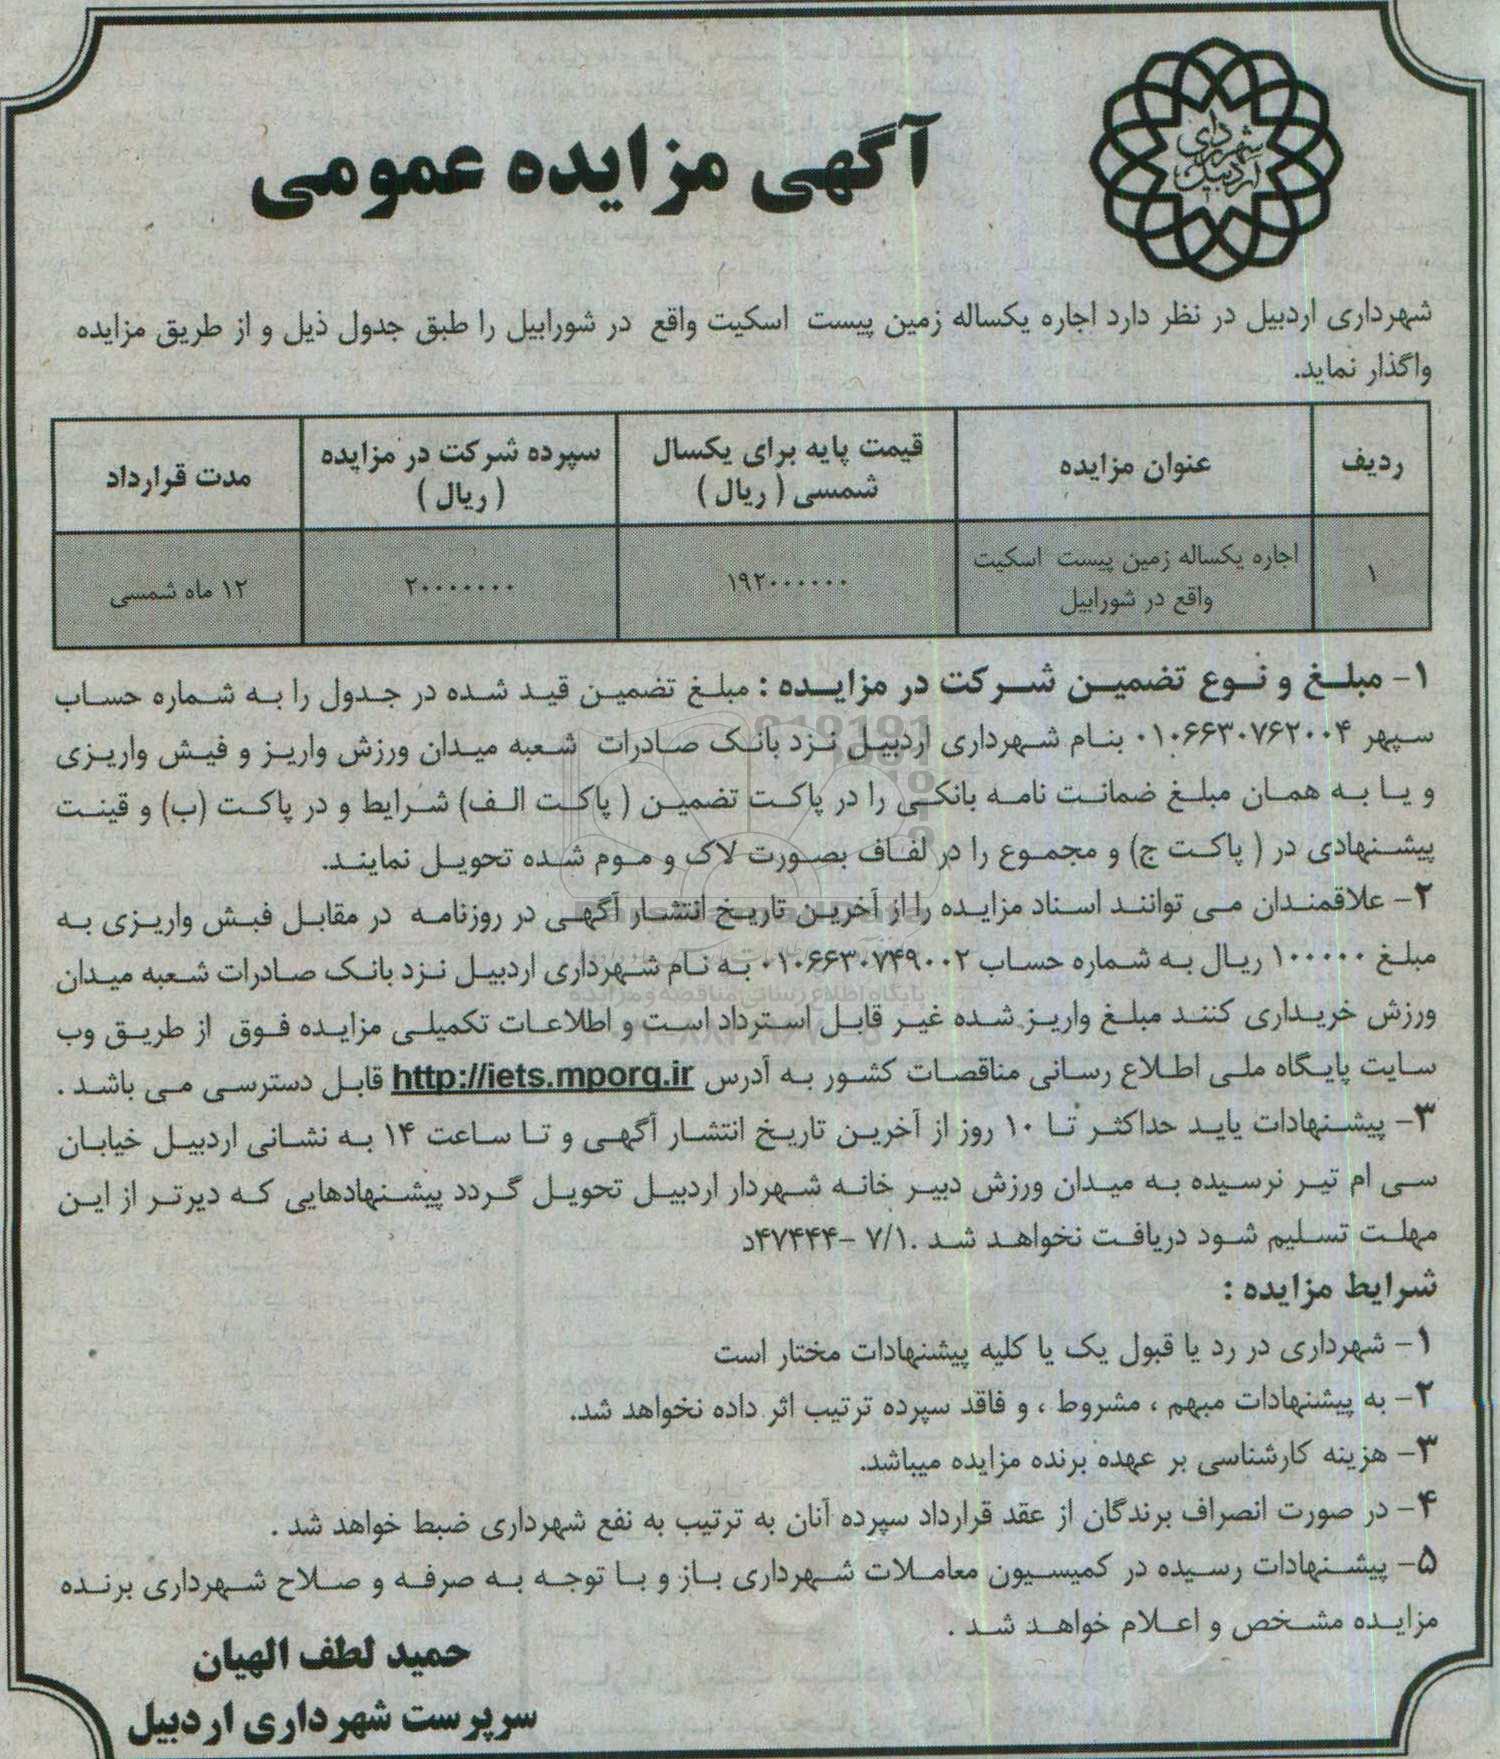 شهرداری اردبیل
آگهی مزایده عمومی
شهرداری اردبیل در نظر دارد اجاره یکساله زمین پیست اسکیت واقع در شورابیل را طبق جدول ذیل و از طریق مزایده
واگذار نماید.
ردیف	عنوان مزایده	قیمت پایه برای یکسال شمسی ( ریال )	سپرده شرکت در مزایده ( ریال )	مدت قرارداد
۱	اجاره یکساله زمین پیست اسکیت واقع در شورابیل	۱۹۲۰۰۰۰۰۰	۲۰۰۰۰۰۰۰	۱۲ ماه شمسی
۱- مبلغ و نوع تضمین شرکت در مزایده : مبلغ تضمین قید شده در جدول را به شماره حساب
سپهر ۰۱۰۶۶۳۰۷۶۲۰۰۴ بنام شهرداری اردبیل نزد بانک صادرات شعبه میدان ورزش واریز و فیش واریزی
و یا به همان مبلغ ضمانت نامه بانکی را در پاکت تضمین ( پاکت الف) شرایط و در پاکت (ب) و قینت
پیشنهادی در ( پاکت ج) و مجموع را در لفاف بصورت لاک و موم شده تحویل نمایند.
۲- علاقمندان می توانند اسناد مزایده را از آخرین تاریخ انتشار آگهی در روزنامه در مقابل فبش واریزی به
مبلغ ۱۰۰۰۰۰ ریال به شماره حساب ۰۱۰۶۶۳۰۷۴۹۰۰۲ به نام شهرداری اردبیل نزد بانک صادرات شعبه میدان
ورزش خریداری کنند مبلغ واریز شده غیر قابل استرداد است و اطلاعات تکمیلی مزایده فوق از طریق وب
سایت پایگاه ملی اطلاع رسانی مناقصات کشور به آدرس http://iets.mporg.ir قابل دسترسی می باشد .
۳- پیشنهادات یاید حداکثر تا ۱۰ روز از آخرین تاریخ انتشار آگهی و تا ساعت ۱۴ به نشانی اردبیل خیابان
سی ام تیر نرسیده به میدان ورزش دبیر خانه شهردار اردبیل تحویل گردد پیشنهادهایی که دیرتر از این
مهلت تسلیم شود دریافت نخواهد شد .۷/۱ -۴۷۴۴۴د
شرایط مزایده :
۱- شهرداری در رد یا قبول یک یا کلیه پیشنهادات مختار است
۲- به پیشنهادات مبهم ، مشروط ، و فاقد سپرده ترتیب اثر داده نخواهد شد.
۳- هزینه کارشناسی بر عهده برنده مزایده میباشد.
۴- در صورت انصراف برندگان از عقد قرارداد سپرده آنان به ترتیب به نفع شهرداری ضبط خواهد شد .
۵- پیشنهادات رسیده در کمیسیون معاملات شهرداری باز و با توجه به صرفه و صلاح شهرداری برنده
مزایده مشخص و اعلام خواهد شد .
حمید لطف الهیان
سرپرست شهرداری اردبیل